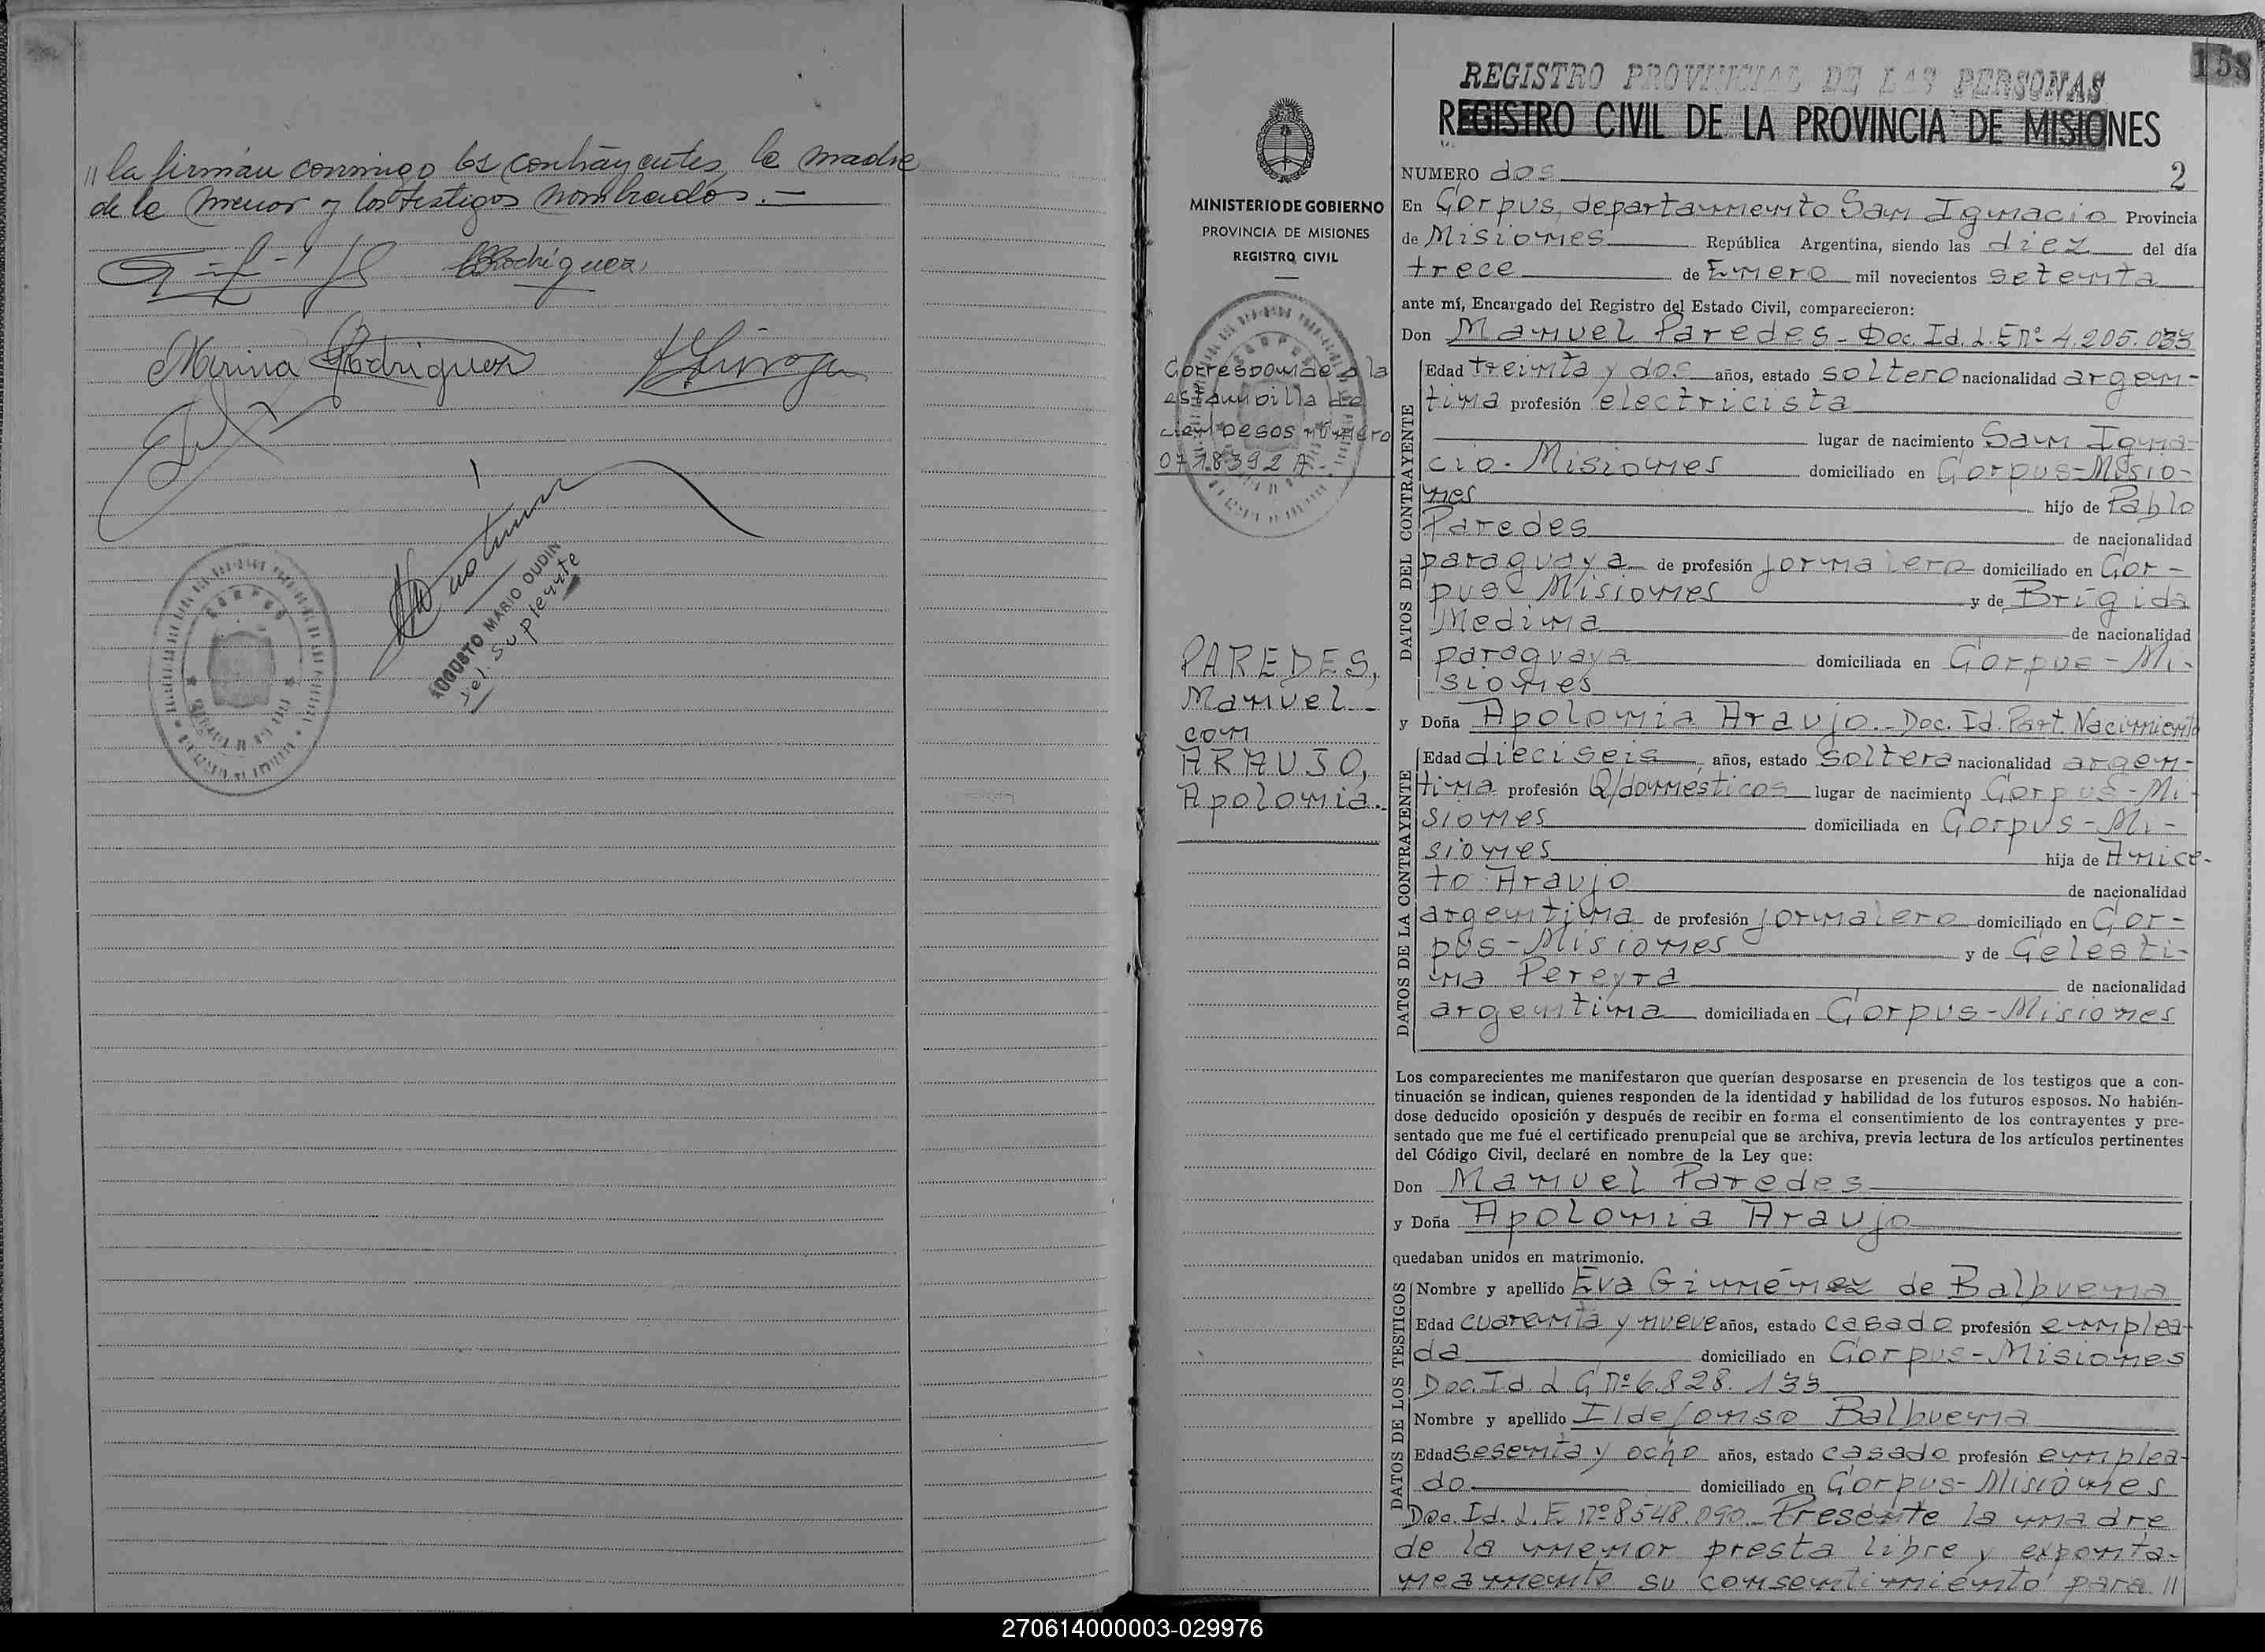 // la firman conmigo los contrayentes, la madre
de la menor y los testigos nombrados. —
Rodriguez
Marina Rodriguez
Quiroga
AUGUSTO MARIO OUDIN
Del. Suplente
CORPUS
158
REGISTRO PROVINCIAL DE LAS PERSONAS
REGISTRO CIVIL DE LA PROVINCIA DE MISIONES
MINISTERIO DE GOBIERNO
PROVINCIA DE MISIONES
REGISTRO CIVIL
Corresponde a la
estampilla de
cien pesos número
0718392 A.
PAREDES,
Manuel
con
ARAUJO,
Apolonia.
NUMERO dos 2
En Corpus, departamento San Ignacio Provincia
de Misiones República Argentina, siendo las diez del día
trece de Enero mil novecientos setenta
ante mí, Encargado del Registro del Estado Civil, comparecieron:
Don Manuel Paredes - Doc. Id. L. E nº 4.205.033
DATOS DEL CONTRAYENTE
Edad treinta y dos años, estado soltero nacionalidad argen-
tina profesión electricista
lugar de nacimiento San Igna-
cio - Misiones domiciliado en Corpus - Misio-
nes hijo de Pablo
Paredes de nacionalidad
paraguaya de profesión jornalero domiciliado en Cor-
pus - Misiones y de Brígida
Medina de nacionalidad
paraguaya domiciliada en Corpus - Mi-
siones
y Doña Apolonia Araujo.- Doc. Id. Part. Nacimiento
DATOS DE LA CONTRAYENTE
Edad dieciseis años, estado soltera nacionalidad argen-
tina profesión Q/domésticos lugar de nacimiento Corpus - Mi-
siones domiciliada en Corpus - Mi-
siones hija de Anice-
to Araujo de nacionalidad
argentina de profesión jornalero domiciliado en Cor-
pus - Misiones y de Celesti-
na Pereyra de nacionalidad
argentina domiciliada en Corpus - Misiones
Los comparecientes me manifestaron que querían desposarse en presencia de los testigos que a con-
tinuación se indican, quienes responden de la identidad y habilidad de los futuros esposos. No habién-
dose deducido oposición y después de recibir en forma el consentimiento de los contrayentes y pre-
sentado que me fué el certificado prenupcial que se archiva, previa lectura de los artículos pertinentes
del Código Civil, declaré en nombre de la Ley que:
Don Manuel Paredes
y Doña Apolonia Araujo
quedaban unidos en matrimonio.
DATOS DE LOS TESTIGOS
Nombre y apellido Eva Giménez de Balbuena
Edad cuarenta y nueve años, estado casado profesión emplea-
da domiciliado en Corpus - Misiones
Doc. Id. L. C nº 6.828.133
Nombre y apellido Ildefonso Balbuena
Edad sesenta y ocho años, estado casado profesión emplea-
do domiciliado en Corpus - Misiones
Doc. Id. L. E. nº 8548.090.- Presente la madre
de la menor presta libre y exponta-
neamente su consentimiento para //
270614000003-029976